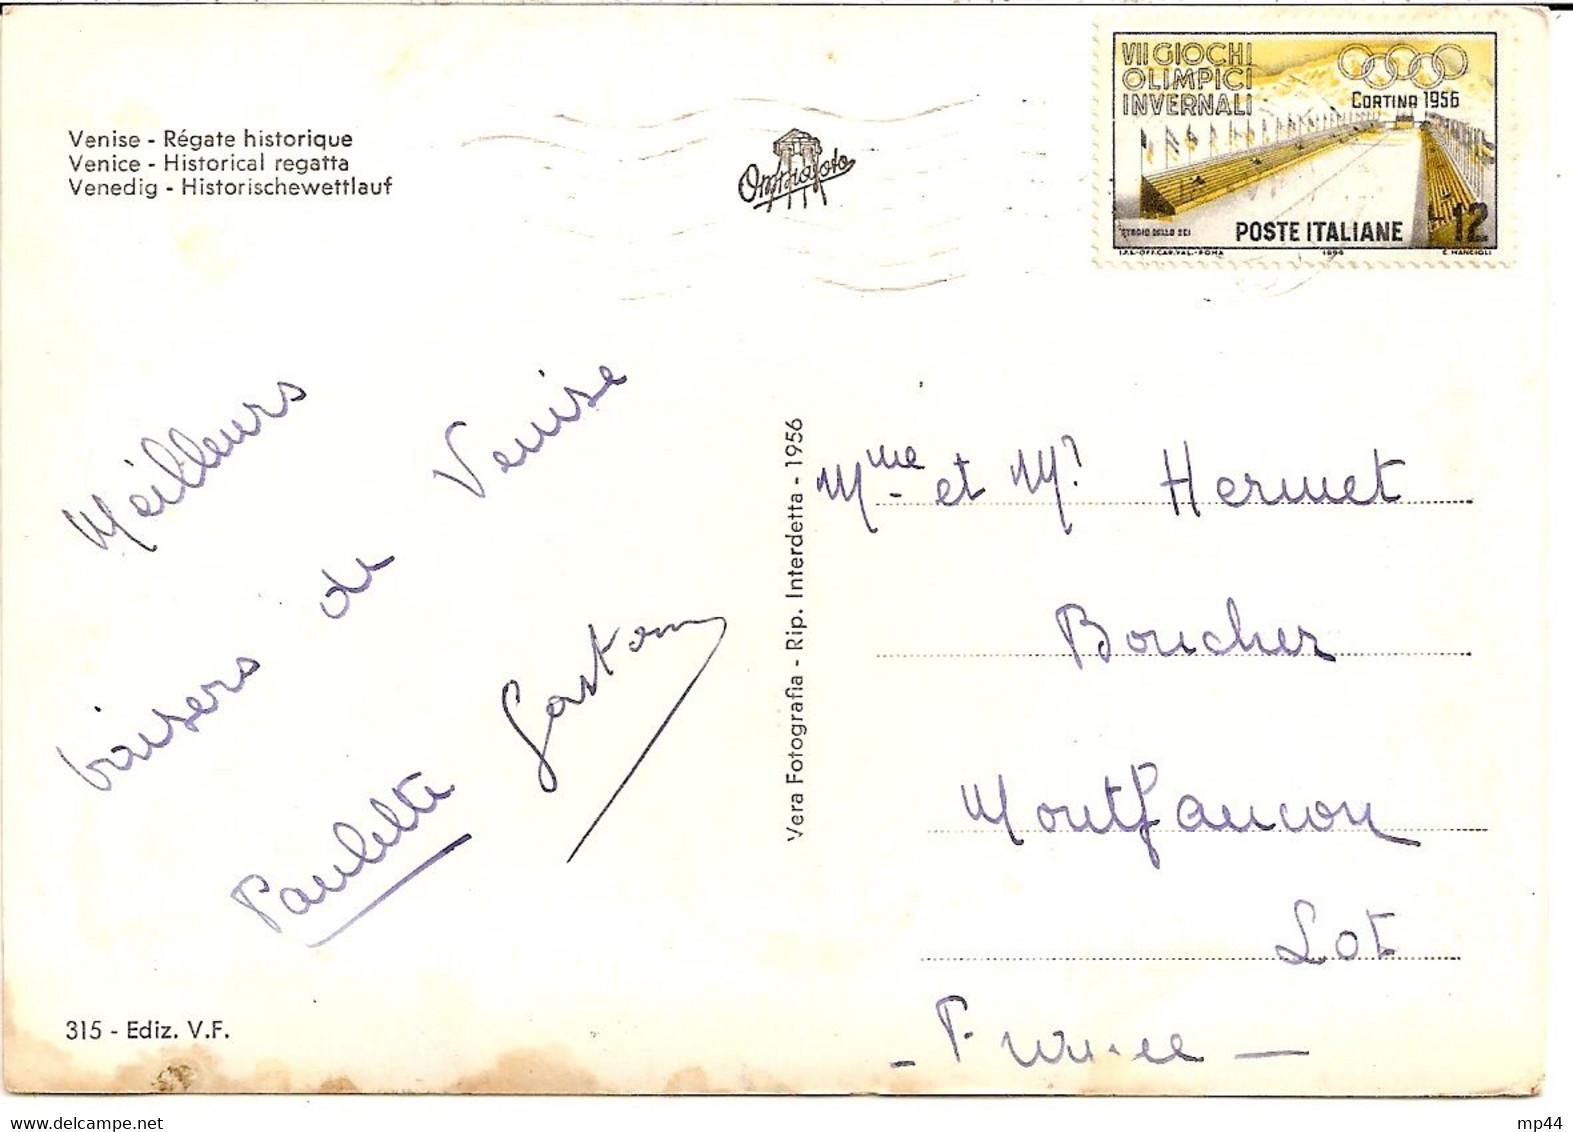 Venise - Régate historique
Venice - Historical regatta
Venedig - Historischewettlauf
Omniafoto
VII GIOCHI
OLIMPICI
INVERNALI
CORTINA 1956
STADIO DELLO SCI
POSTE ITALIANE
12
I.P.S.-OFF.CAR.VAL.-ROMA 1956 C. MANCIOLI
Meilleurs
baisers de Venise
Paulette Gaston
Vera Fotografia - Rip. Interdetta - 1956
Mme et Mr Hermet
Boucher
Montfaucon
Lot
- France -
315 - Ediz. V.F.
mp44
www.delcampe.net